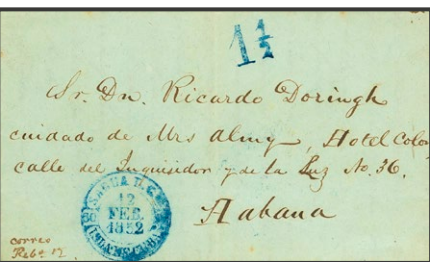 1½
Sr. Dn. Ricardo Doringh
cuidado de Mrs Almy, Hotel Colon
calle del Inquisidor y de la Luz No. 36.
Habana
SAGUA
12
FEB.
1852
correo